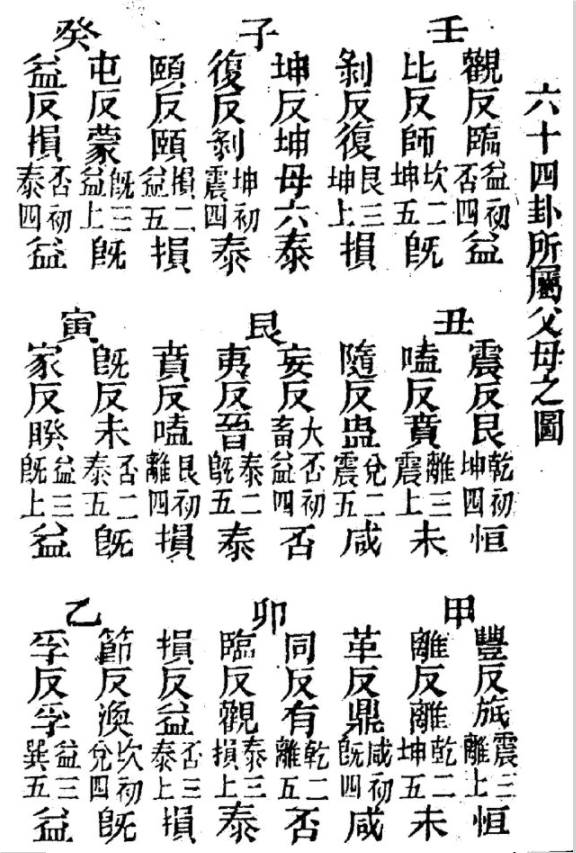 六十四卦所屬父母之圖
壬
觀反臨益初否四益
比反師坎二坤五既
剝反復艮三坤上損
子
坤反坤母六泰
復反剝坤初震四泰
頤反頤損二益五損
癸
屯反蒙既三益上既
益反損否初泰四益
丑
震反艮乾初坤四恒
嗑反賁離三震上未
隨反蠱兌二震五咸
艮
妄反大畜否初益四否
夷反晉泰二既五泰
賁反嗑艮初離四損
寅
既反未否二泰五既
家反睽益三既上益
甲
豐反旅震三離上恒
離反離乾二坤五未
革反鼎咸初既四咸
卯
同反有乾二離五否
臨反觀泰三損上泰
損反益否三泰上損
乙
節反渙坎初兌四既
孚反孚益三巽五益